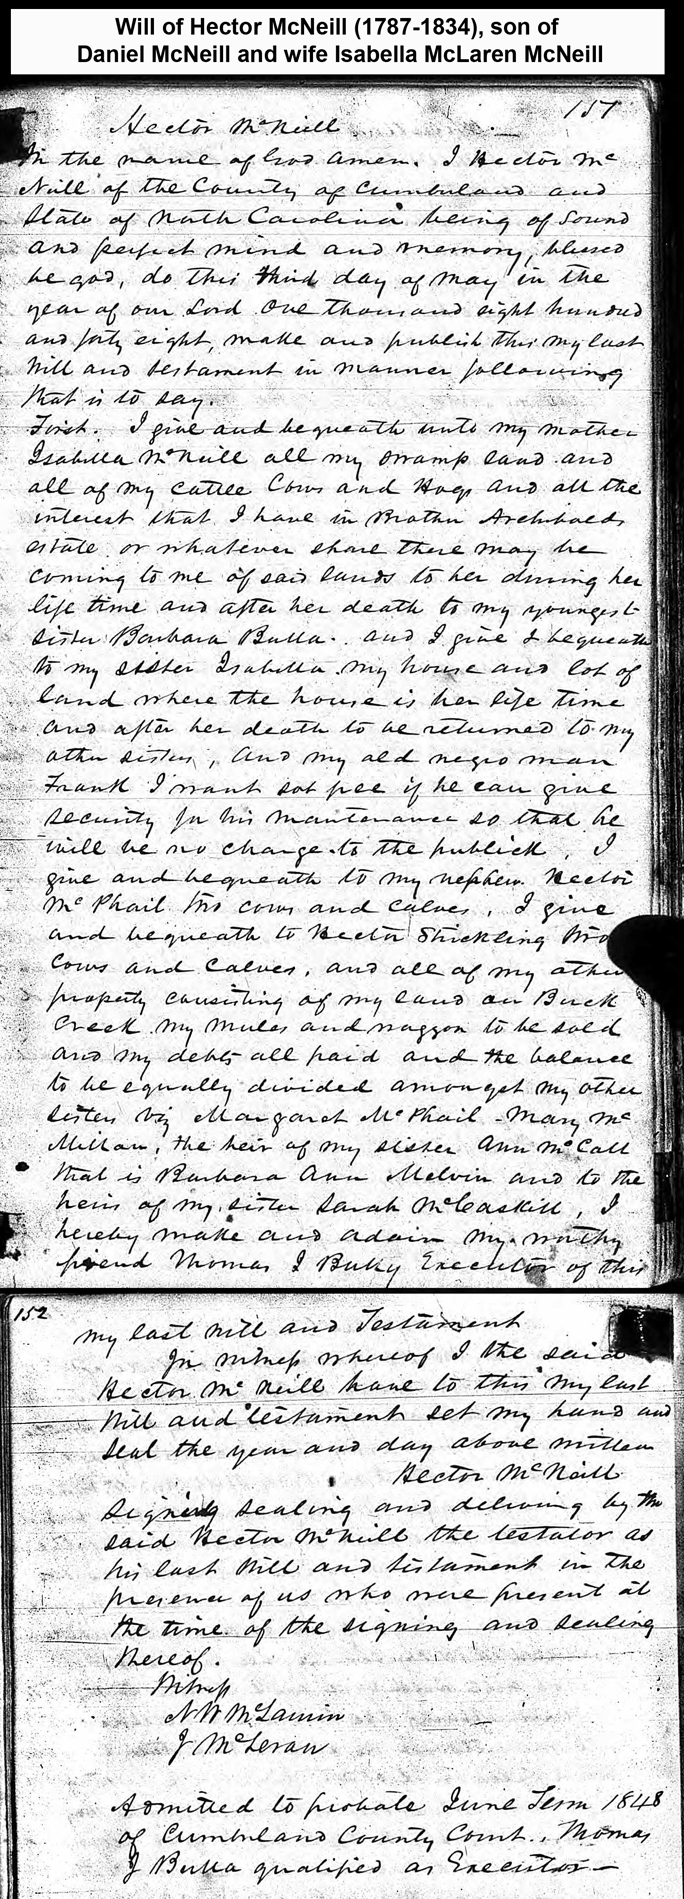 Will of Hector McNeill (1787-1834), son of
Daniel McNeill and wife Isabella McLaren McNeill
157
Hector McNeill
In the name of God amen. I Hector Mc
Neill of the County of Cumberland and
State of North Carolina being of Sound
and perfect mind and memory, blessed
be god, do this third day of May in the
year of our Lord One thousand eight hundred
and forty eight, make and publish this my last
Will and testament in manner following
that is to say.
First. I give and bequeath unto my mother
Isabella McNeill all my swamp land and
all of my cattle Cows and Hogs and all the
interest that I have in Brother Archibalds
estate or whatever share there may be
coming to me of said lands to her during her
life time and after her death to my youngest
sister Barbara Bulla. and I give & bequeath
to my sister Isabella my house and lot of
land where the house is her life time
and after her death to be returned to my
other sisters, And my old negro man
Frank I want sot free if he can give
security for his maintenance so that he
will be no charge to the publick, I
give and bequeath to my nephew Hector
McPhail two cows and calves, I give
and bequeath to Hector Strickling two
Cows and Calves, and all of my other
property consisting of my land on Buck
Creek my mules and waggon to be sold
and my debts all paid and the balance
to be equally divided amongst my other
sisters viz Margaret McPhail - Mary Mc
Millan, the heir of my sister Ann McCall
that is Barbara Ann Melvin and to the
heirs of my sister Sarah McCaskill, I
hereby make and my worthy
friend Thomas J Executor of this
152
my last will and Testament
In witness whereof I the said
Hector McNeill have to this my last
Will and testament set my hand and
seal the year and day above written
Hector McNeill
Signing sealing and delivering by the
said Hector McNeill the testator as
his last Will and testament in the
presence of us who were present at
the time of the signing and sealing
thereof.
Witness
N W McLaurin
J McLeran
Admitted to probate June Term 1848
of Cumberland County Court. Thomas
J Bulla qualified as Executor